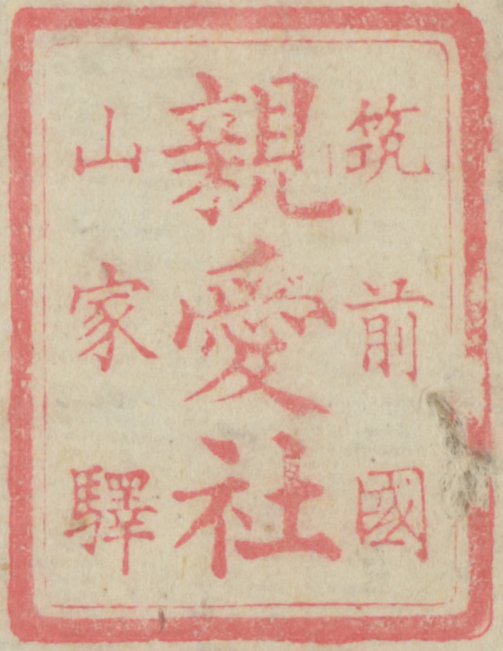 筑前國
親愛社
山家驛